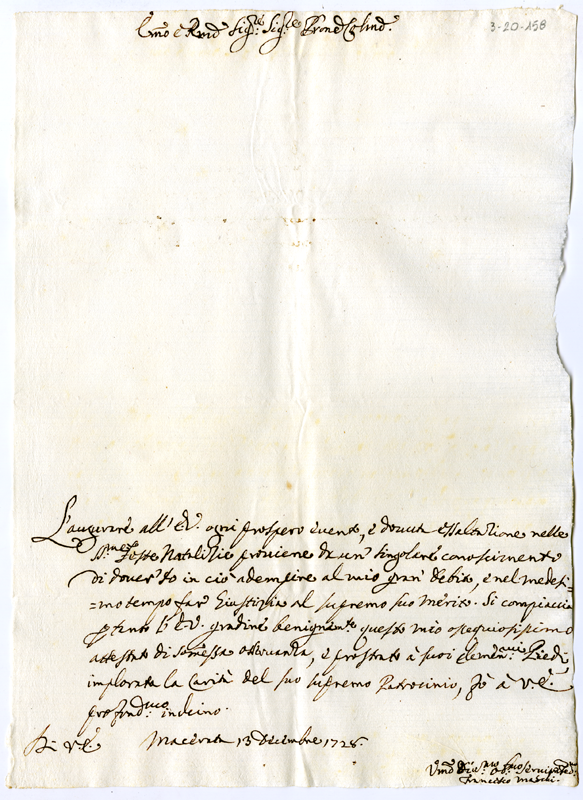 Emo e Rmo Sig.re Sig.re Prone Colmo.
3-20-158
L'augurare all'E.V. ogni prospero evento, e douuta essaltazione nelle
S.me Feste Natalitie proviene da un singolare conoscimento
di dover Io in ciò adempire al mio gran debito, e nel medesi=
=mo tempo far Giustizia al supremo suo Merito. Si compiaccia
p tanto l'E.V. gradire benignam.te questo mio ossequiosissimo
attestato di somessa osservanza, e prostrato à suoi clemen.mi Piedi
implorata la Carità del suo supremo Patrocinio, fò à V.E.
profond.mo inchino.
Di V.E. Macerata 13 Decembre 1728.
Umo Servitore
Francesco Maschi.